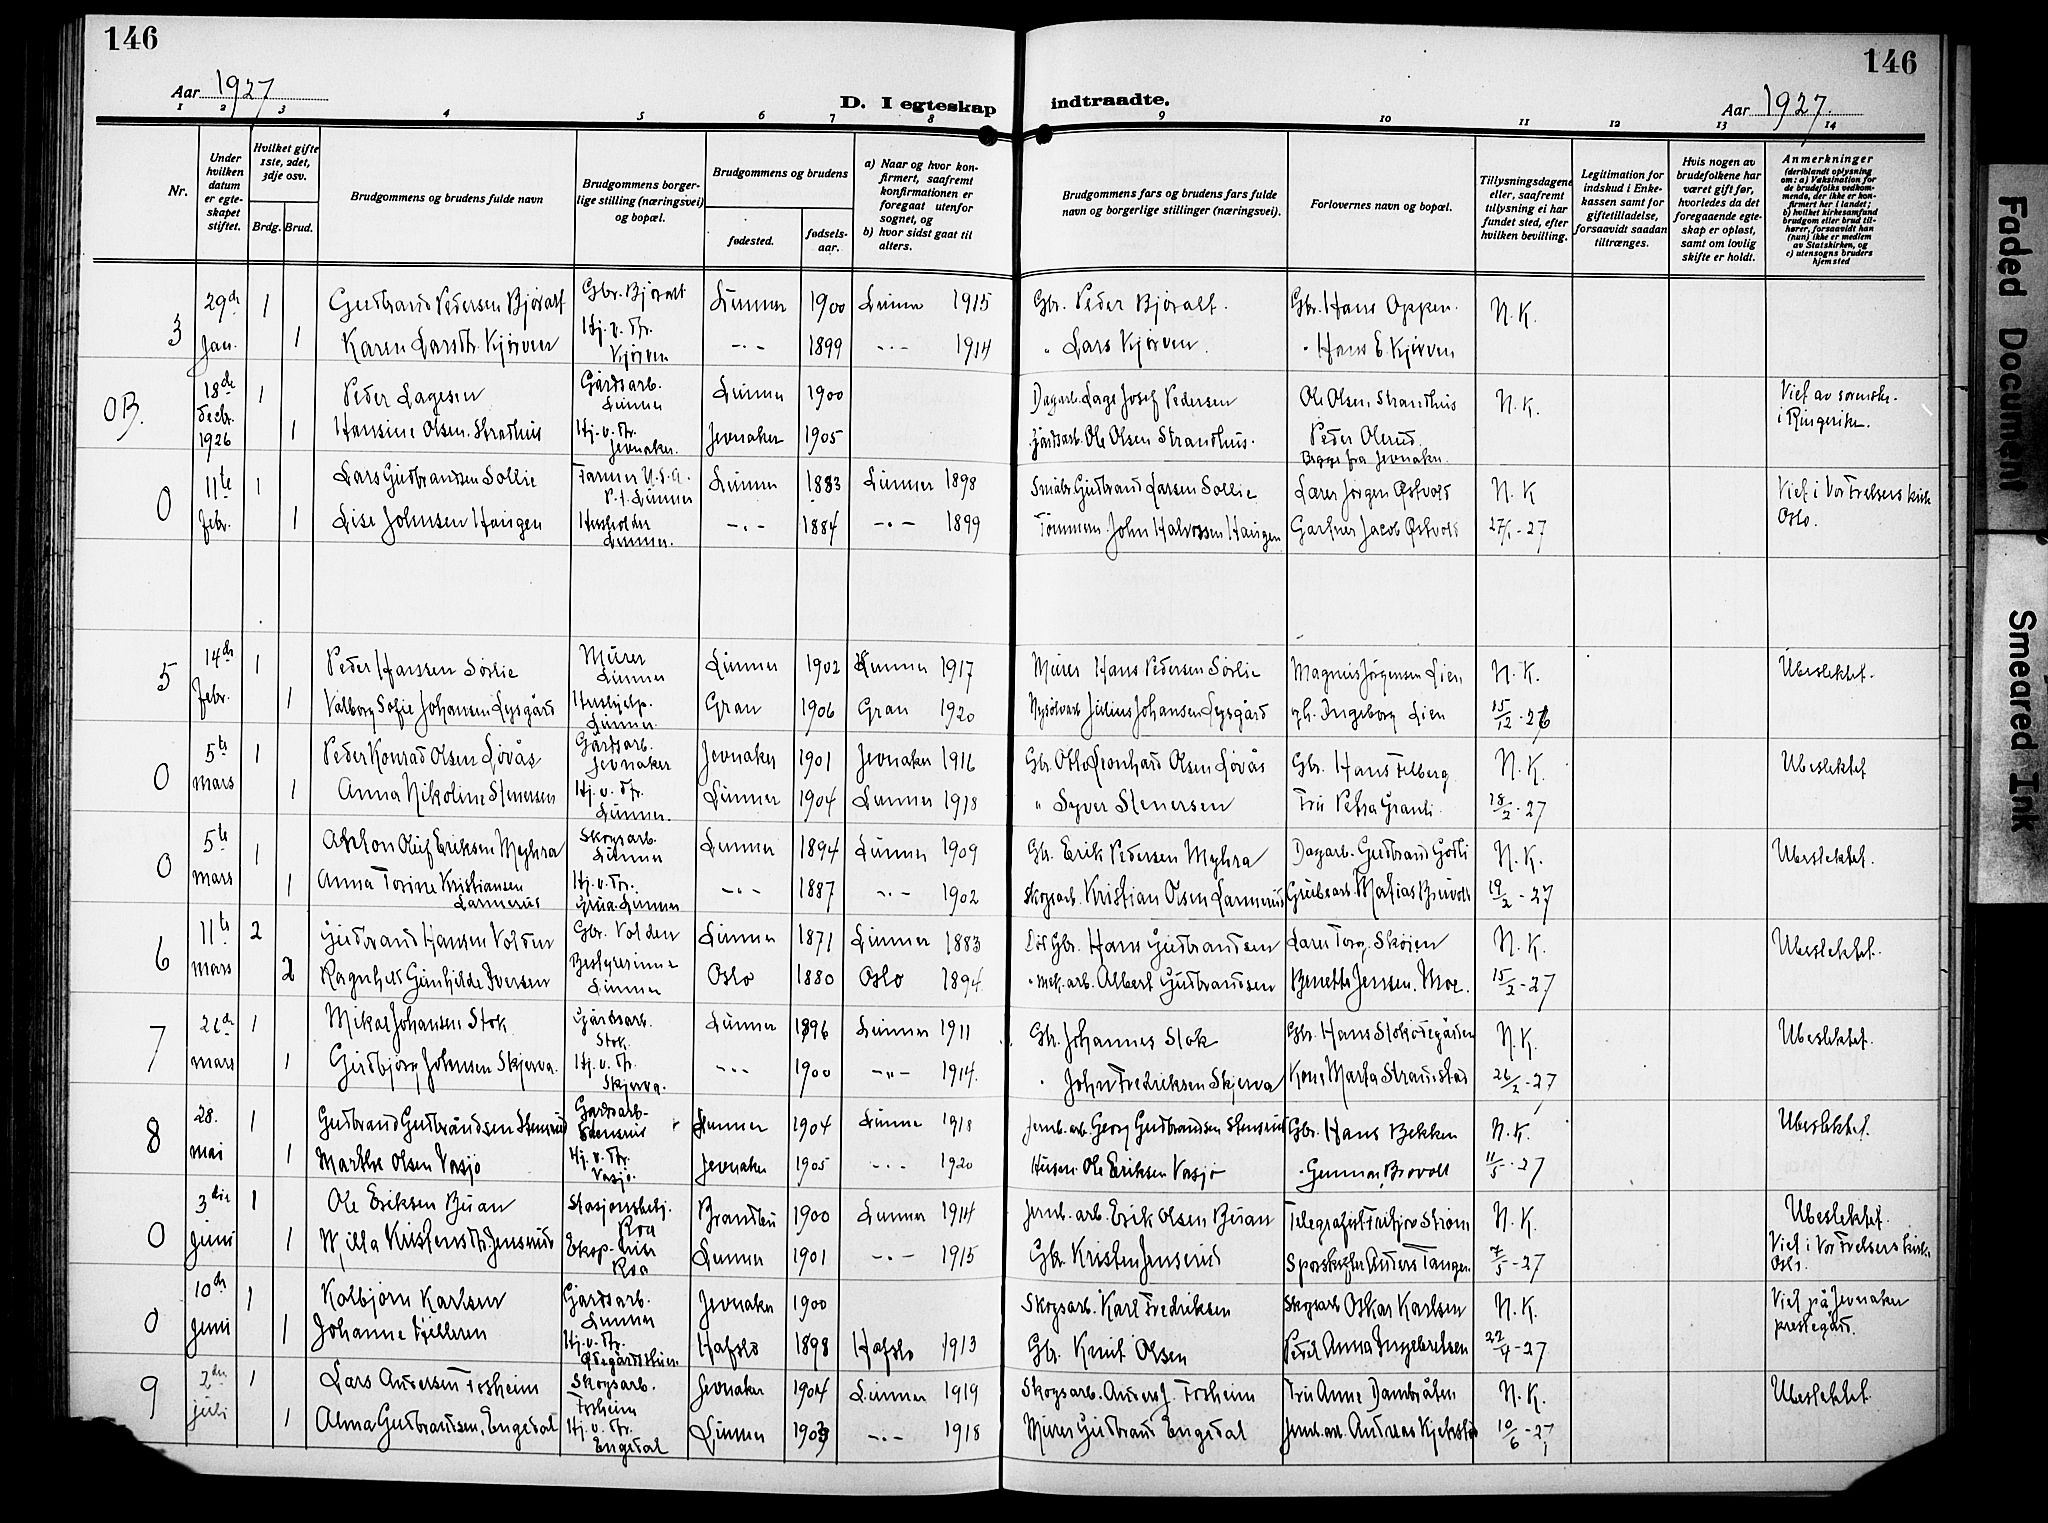 146
146
Aar 1927
D. I egteskap indtraadte.
Aar 1927.
1 2 3 4 5 6 7 8 9 10 11 12 13 14
Nr.
Under hvilken datum er egteskapet stiftet.
Hvilket gifte 1ste, 2det, 3dje osv.
Brdg. Brud.
Brudgommens og brudens fulde navn
Brudgommens borgerlige stilling (næringsvei) og bopæl.
Brudgommens og brudens
fødested.
fødselsaar.
a) Naar og hvor konfirmert, saafremt konfirmationen er foregaat utenfor sognet, og
b) hvor sidst gaat til alters.
Brudgommens fars og brudens fars fulde navn og borgerlige stillinger (næringsvei).
Forlovernes navn og bopæl.
Tillysningsdagene eller, saafremt tillysning ei har fundet sted, efter hvilken bevilling.
Legitimation for indskud i Enkekassen samt for giftetilladelse, forsaavidt saadan tiltrænges.
Hvis nogen av brudefolkene har været gift før, hvorledes da det foregaaende egteskap er opløst, samt om lovlig skifte er holdt.
Anmerkninger (deriblandt oplysning om: a) Vaksination for de brudefolks vedkommende, der ikke er konfirmert her i landet; b) hvilket kirkesamfund brudgom eller brud tilhører, forsaavidt han (hun) ikke er medlem av Statskirken, og c) utensogns bruders hjemsted
3 29de 1 Gudbrand Pedersen Bjøralt Gbr. Bjøralt Lunner 1900 Lunner 1915 Gbr. Peder Bjøralt. Gbr. Hans Oppen. N.K.
Jan. 1 Karen Larsdtr. Kjørven Hj. v. Fr. Kjørven -"- 1899 -"- 1914 " Lars Kjørven " Hans E. Kjørven
OB. 18de 1 Peder Lagesen Gårdsarb. Lunner Lunner 1900 Dagarb. Lage Josef Pedersen Ole Olsen Strandhus N.K. Viet av sorenskr. i Ringerike.
Decbr. 1926 1 Hansine Olsen Strandhus Hj. v. Fr. Jevnaker. Jevnaker 1905 Gårdsarb. Ole Olsen Strandhus. Peder Olerud. Begge fra Jevnaker.
0 11te 1 Lars Gudbrandsen Sollie Farmer U.S.A. P.t. Lunner Lunner 1883 Lunner 1898 Småbr. Gudbrand Larsen Sollie Lærer Jørgen Østvold N.K Viet i Vor Frelsers kirke Oslo.
febr. 1 Lise Johnsen Haugen Husholder Lunner. -"- 1884 -"- 1899 Tømmerm. John Halvorsen Haugen Gartner Jacob Østvold 27/1-27
5 14de 1 Peder Hansen Sørlie Murer Lunner Lunner 1902 Lunner 1917 Murer Hans Pedersen Sørlie Magnus Jørgensen Lien N.K. Ubeslektet.
febr. 1 Valborg Sofie Johansen Lysgård Hushjelp. Lunner. Gran 1906 Gran 1920 Nysølvarb. Julius Johansen Lysgård gh. Ingeborg Lien 15/12-26
0 5te 1 Peder Konrad Olsen Løvås Gårdsarb. Jevnaker Jevnaker 1901 Jevnaker 1916 Gbr. Otto Leonhard Olsen Løvås Gbr. Hans Filberg N.K. Ubeslektet
mars 1 Anna Nikoline Stenersen Hj. v. Fr. Lunner. Lunner 1904 Lunner 1918 " Syver Stenersen Fru Petra Granli. 18/2-27
0 5te 1 Oluf Eriksen Myhra Skogsarb. Lunner Lunner 1894 Lunner 1909 Gbr. Erik Pedersen Myhra Dagarb. Gudbrand Godli N.K. Ubeslektet.
mars 1 Anna Torine Kristiansen Larmerud Hj. v. Fr. Grua. Lunner -"- 1887 -"- 1902 Skogsarb. Kristian Olsen Larmerud Grubearb. Mathias Bruvold 19/2-27
6 11te 2 Gudbrand Hansen Volden Gbr. Volden Lunner 1871 Lunner 1883 Gbr. Hans Gudbrandsen Lærer Torg. Skøien N.K. Ubeslektet.
mars 2 Ragnhild Gunhilde Iversen Bestyrerinne Lunner Oslo 1880 Oslo 1894 " mek. arb. Albert Gudbrandsen Benette Jensen. Moe. 15/2-27
7 26de 1 Mikal Johansen Stok Gårdsarb. Stok. Lunner 1896 Lunner 1911 Gbr. Johannes Stok Gbr. Hans Stokødegården N.K. Ubeslektet.
mars 1 Gudbjørg Johnsen Skjerva. Hj. v. Fr. Skjerva. -"- 1900 -"- 1914. " John Fredriksen Skjerva Kone Marta Strandstad 26/2-27
8 28. 1 Gudbrand Gudbrandsen Stensrud Gårdsarb- Stensrud Lunner 1904 Lunner 1918 Jernb. arb. Georg Gudbrandsen Stensrud Gbr. Hans Bekken N.K. Ubeslektet.
mai 1 Marthe Olsen Vasjø Hj. v. Fr. Vasjø. Jevnaker 1905 -"- 1920 Husm. Ole Eriksen Vasjø " Gunnar Brovolt 11/5-27
0 3die 1 Ole Eriksen Buan Stasjonsbetj. Roa Brandbu 1900 Lunner 1914 Jernb. arb. Erik Olsen Buan Telegrafist Fritjov Strøm N.K. Ubeslektet.
juni 1 Kristensdtr. Jensrud Roa Lunner 1901 -"- 1915 Gbr. Kristen Jensrud Sporskifter Anders Tangen 7/5-27 Viet i Vor Frelsers kirke Oslo.
0 10de 1 Kolbjørn Karlsen Gårdsarb. Lunner Jevnaker 1900 Skogsarb. Karl Fredriksen Skogsarb Oskar Karlsen N.K. Viet på Jevnaker prestegård.
juni 1 Johanne Fjelleren Hj. v. Fr. Hafslo 1898 Hafslo 1913 Gbr. Knut Olsen Anna Ingebretsen 22/4-27
9 2den 1 Lars Andersen Forheim Skogsarb. Forheim Jevnaker 1904 Lunner 1919 Skogsarb. Anders J. Forheim Fru Anne Dambråten N.K. Ubeslektet.
juli 1 Alma Gudbrandsen. Engedal Hj. v. Fr. Engedal Lunner 1903 -"- 1918 Murer Gudbrand Engedal Jernb. arb. Andreas Kjekstad 10/6-27
Faded Document
Smeared Ink